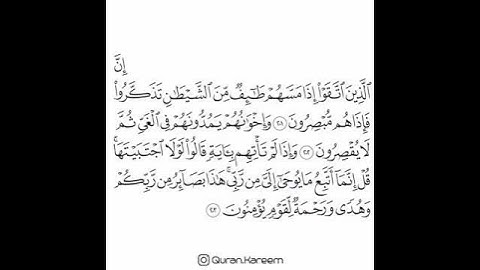 إِنَّ
ٱلَّذِينَ ٱتَّقَوْا۟ إِذَا مَسَّهُمْ طَـٰٓئِفٌ مِّنَ ٱلشَّيْطَـٰنِ تَذَكَّرُوا۟
فَإِذَا هُم مُّبْصِرُونَ وَإِخْوَٰنُهُمْ يَمُدُّونَهُمْ فِى ٱلْغَىِّ ثُمَّ
لَا يُقْصِرُونَ وَإِذَا لَمْ تَأْتِهِم بِـَٔايَةٍ قَالُوا۟ لَوْلَا ٱجْتَبَيْتَهَا ۚ
قُلْ إِنَّمَآ أَتَّبِعُ مَا يُوحَىٰٓ إِلَىَّ مِن رَّبِّى ۚ هَـٰذَا بَصَآئِرُ مِن رَّبِّكُمْ
وَهُدًى وَرَحْمَةٌ لِّقَوْمٍ يُؤْمِنُونَ
Quran.Kareem